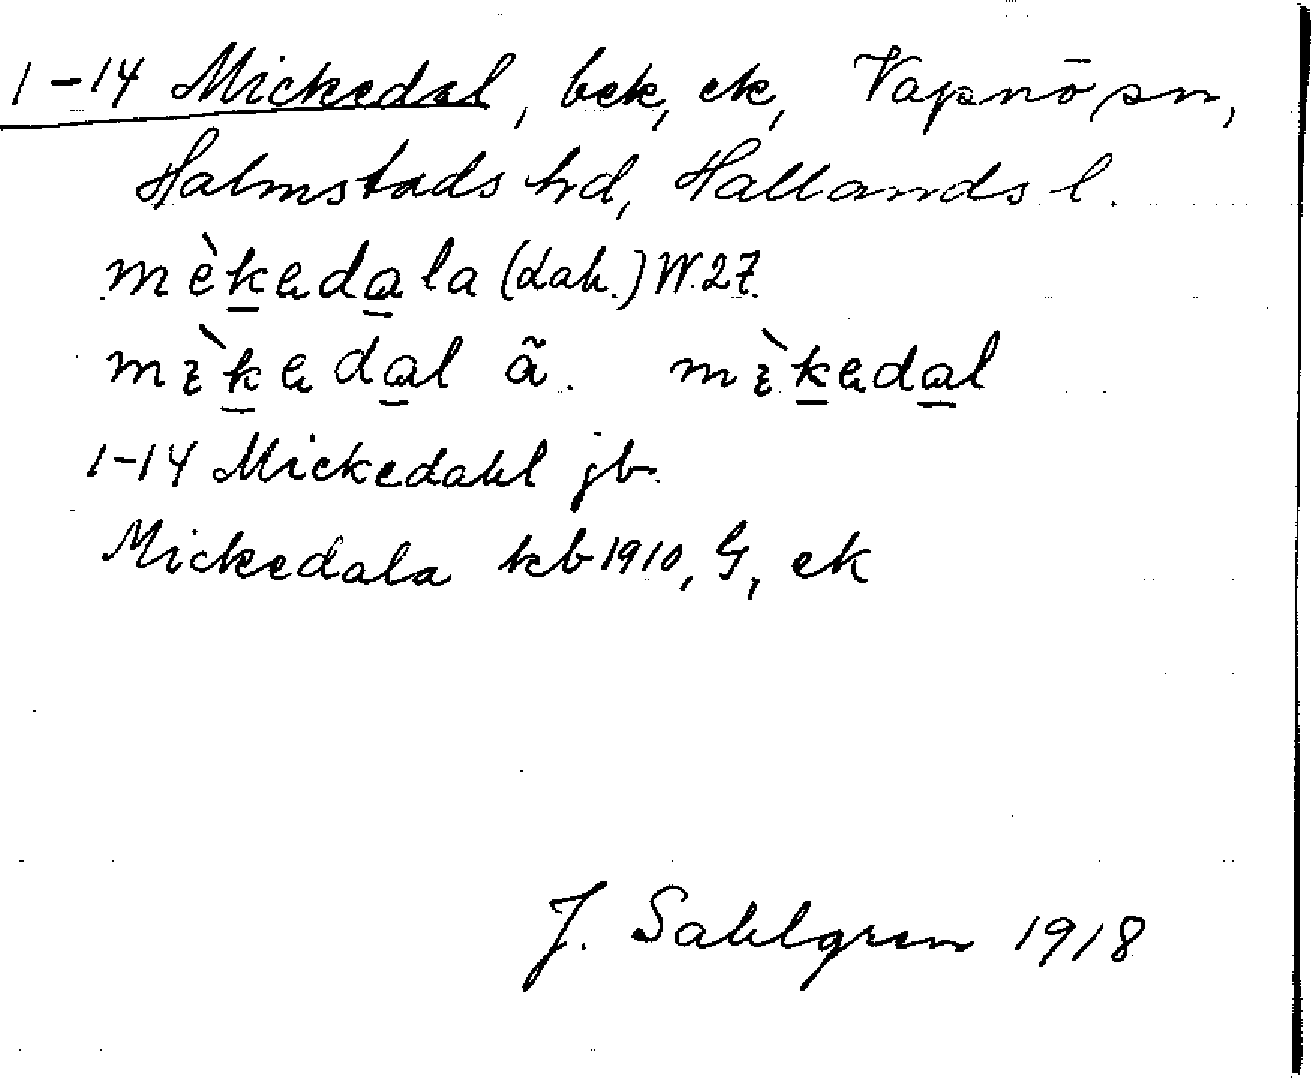 1-14 Mickedal, bek, ek, Vapnö sn,
Halmstads hd, Hallands l.
mèkadala (dah.) W.27.
mìkadal ã. mìkadal
1-14 Mickedahl jb.
Mickedala kb 1910, G, ek
J. Sahlgren 1918